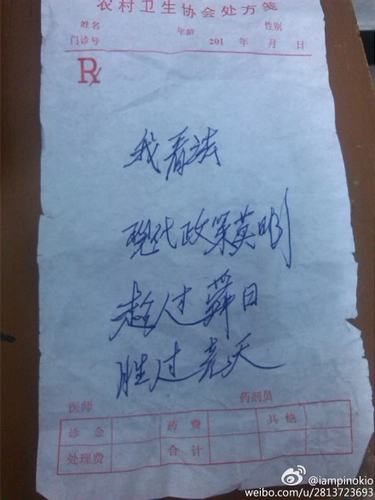 农村卫生协会处方笺
姓名 年龄 性别
门诊号 201 年 月 日
R
我看法
现代政策英明
超过舜日
胜过尧天
医师 药剂员
诊金 药费 其他
处理费 合计
@iampinokio
weibo.com/u/2813723693